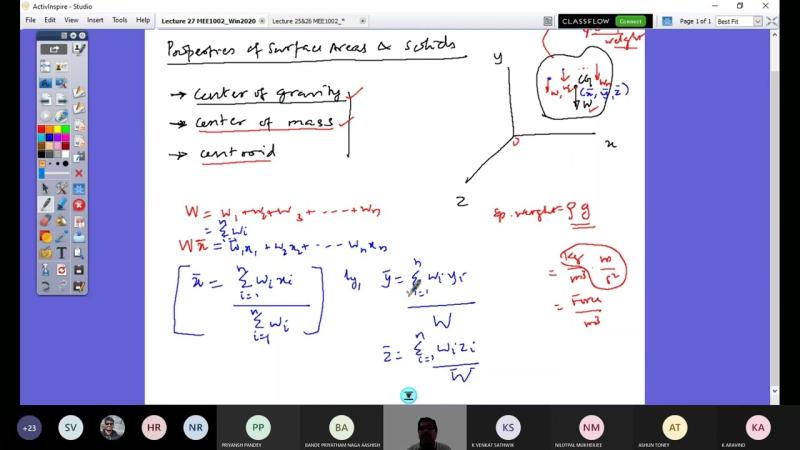 ActivInspire - Studio
File Edit View Insert Tools Help
Lecture 27 MEE1002_Win2020
Lecture 25&26 MEE1002_*
CLASSFLOW Connect
Page 1 of 1
Best Fit
Properties of Surface Areas & Solids
→ center of gravity ✓
→ center of mass ✓
→ centroid
weight
y
CG
w₁ w₂ wₙ
(x̄, ȳ, z̄)
W
O
x
z
W = w₁ + w₂ + w₃ + ---- + wₙ
= Σⁿ wᵢ
W x̄ = w₁x₁ + w₂x₂ + --- wₙxₙ
[ x̄ = Σⁿᵢ₌₁ wᵢxᵢ / Σⁿᵢ₌₁ wᵢ ]
lly, ȳ = Σⁿᵢ₌₁ wᵢyᵢ / W
z̄ = Σⁿᵢ₌₁ wᵢzᵢ / W
sp. weight = ρg
= kg/m³ m/s²
= Force/m³
+23
SV
HR
NR
PP
BA
KS
NM
AT
KA
PRIYANSH PANDEY
BANDE PRIYATHAM NAGA AASHISH
K VENKAT SATHWIK
NILOTPAL MUKHERJEE
ASHUN TONEY
K ARAVIND